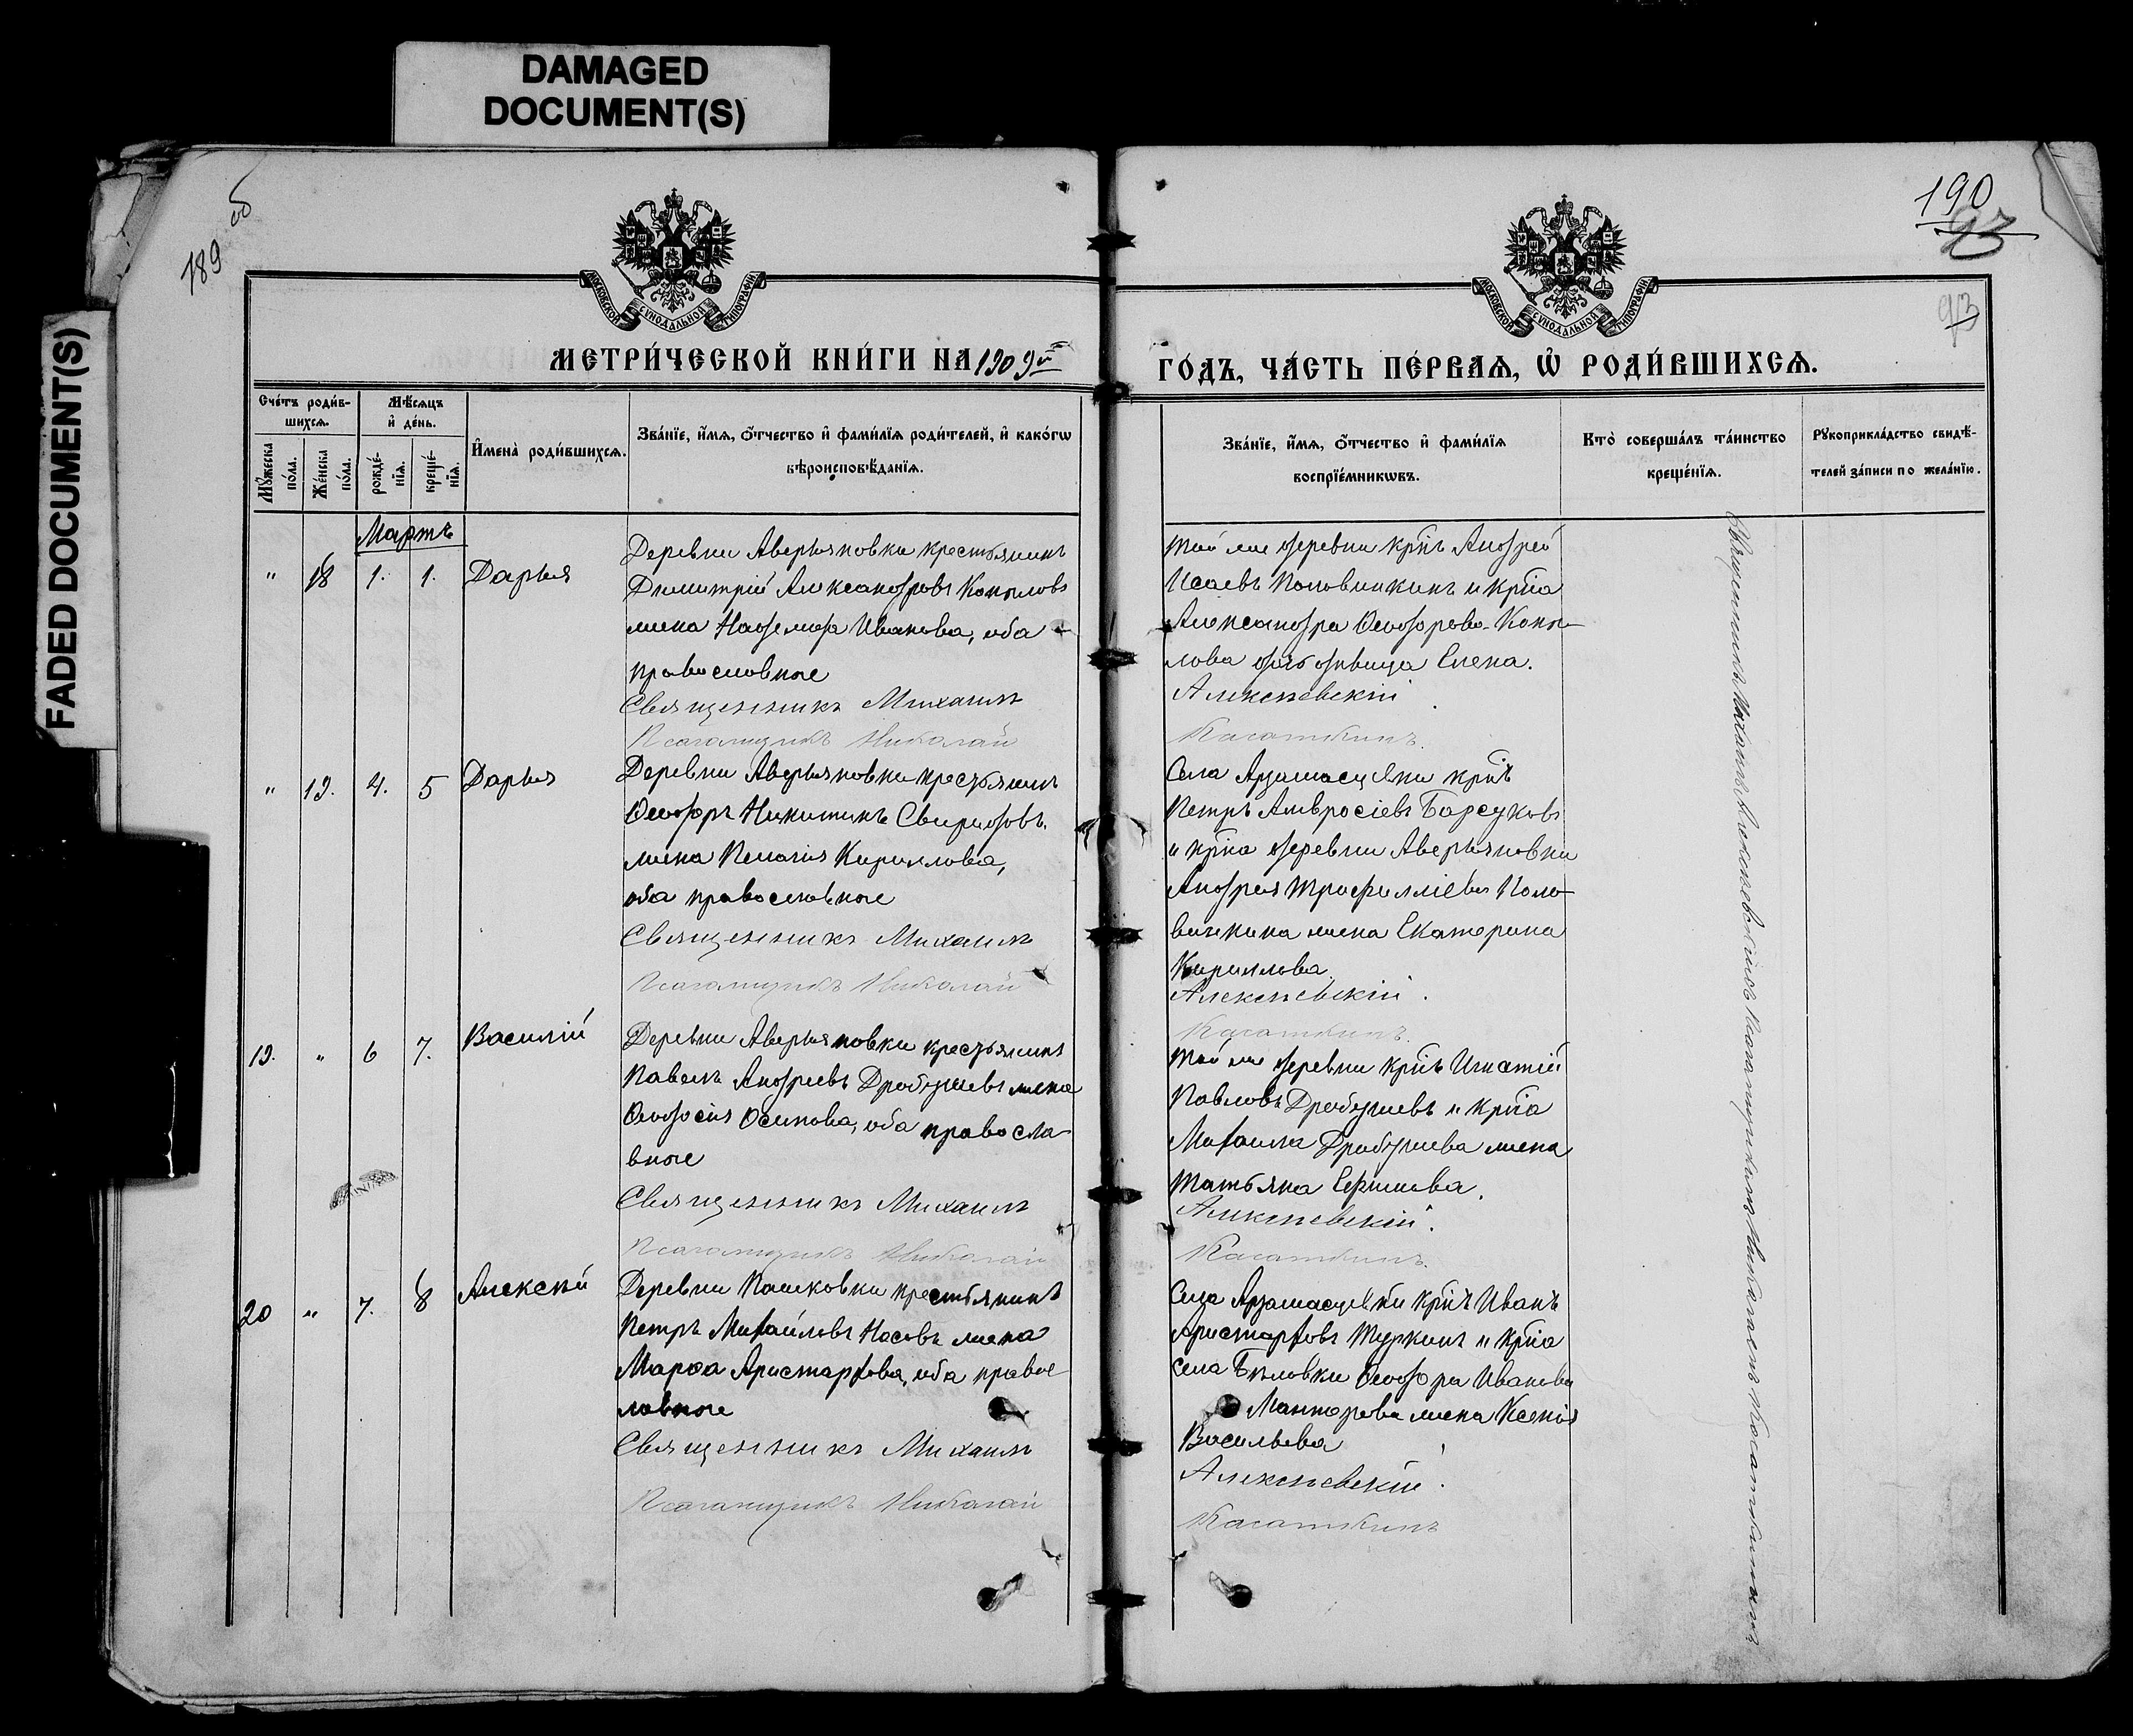 DAMAGED
DOCUMENT(S)
FADED DOCUMENT(S)
189 об
190
93
93
МОСКОВСКОЙ СѴНОДАЛЬНОЙ ТИПОГРАФІИ
МОСКОВСКОЙ СѴНОДАЛЬНОЙ ТИПОГРАФІИ
МЕТРИ́ЧЕСКОЙ КНИ́ГИ НА 1909й
ГО́ДЪ, ЧА́СТЬ ПЕ́РВАѦ, Ѡ҆ РОДИ́ВШИХСѦ.
Сче́тъ роди́в-
шихсѧ.
Мꙋ́жеска по́ла.
Же́нска по́ла.
Мѣ́сѧцъ
и҆ де́нь.
рожде́-
нїѧ.
креще́-
нїѧ.
И҆мена̀ роди́вшихсѧ.
Зва́нїе, и҆́мѧ, ѻ҆́тчество и҆ фами́лїѧ роди́телей, и҆ како́гѡ
вѣроисповѣ́данїѧ.
Зва́нїе, и҆́мѧ, ѻ҆́тчество и҆ фами́лїѧ
воспрїе́мникѡвъ.
Кто̀ соверша́лъ та́инство
креще́нїѧ.
Рꙋкоприкла́дство свидѣ́-
телей за́писи по жела́нїю.
Мартъ
" 18 1. 1. Дарья
Деревни Аверьяновки крестьянинъ
Димитрій Александровъ Копыловъ
жена Надежда Иванова, оба
православные
Священникъ Михаилъ
Псаломщикъ Николай
Той же деревни кр͠нъ Андрей
Исаевъ Половинкинъ и кр͠ка
Александра Ѳеодорова Копы-
лова дѣвица Елена.
Алексѣевскій
Касаткинъ.
" 19. 4. 5 Дарья
Деревни Аверьяновки крестьянинъ
Ѳеодоръ Никитинъ Свиридовъ
жена Пелагія Кириллова,
оба православные
Священникъ Михаилъ
Псаломщикъ Николай
Села Арзамасцевки кр͠нъ
Петръ Амвросіевъ Барсуковъ
и кр͠на деревни Аверьяновки
Андрея Трифилліева Поло-
винкина жена Екатерина
Кириллова.
Алексѣевскій.
Касаткинъ.
19. " 6 7. Василій
Деревни Аверьяновки крестьянинъ
Павелъ Андреевъ Дробушевъ жена
Ѳеодосія Осипова, оба правосла-
вные
Священникъ Михаилъ
Псаломщикъ Николай
Той же деревни кр͠нъ Игнатій
Павловъ Дробушевъ и кр͠на
Михаила Дробушева жена
Татьяна Ефимова.
Алексѣевскій.
Касаткинъ.
20 " 7. 8 Алексѣй
Деревни Пашковки крестьянинъ
Петръ Михайловъ Носовъ жена
Марѳа Аристархова, оба правос
лавные
Священникъ Михаилъ
Псаломщикъ Николай
Села Арзамасцевки кр͠нъ Иванъ
Аристарховъ Туркинъ и кр͠на
села Бѣловки Ѳеодора Иванова
жена Ксенія
Васильева
Алексѣевскій.
Касаткинъ
Священникъ Михаилъ Алексѣевскій съ Псаломщикомъ Николаемъ Касаткинымъ